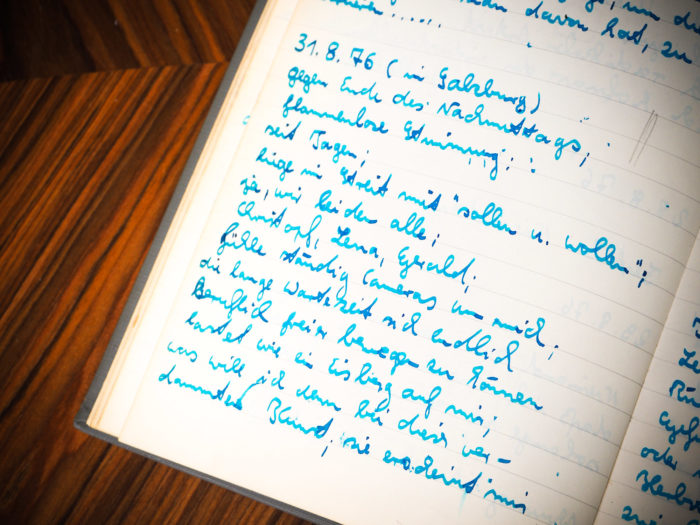 man davon hat, zu
31. 8. 76 (in Salzburg)
gegen Ende des Nachmittags;
flammenlose Stimmung;
seit Tagen;
liege im Streit mit "sollen u. wollen";
ja, wir leiden alle;
Christoph, Lena, Gerald;
fühle ständig Cameras um mich;
die lange Wartezeit sich endlich
Beruflich freier bewegen zu können
lastet wie ein Eisberg auf mir;
was will ich denn bei dieser ver-
dammten Kunst, sie erscheint mir
oder